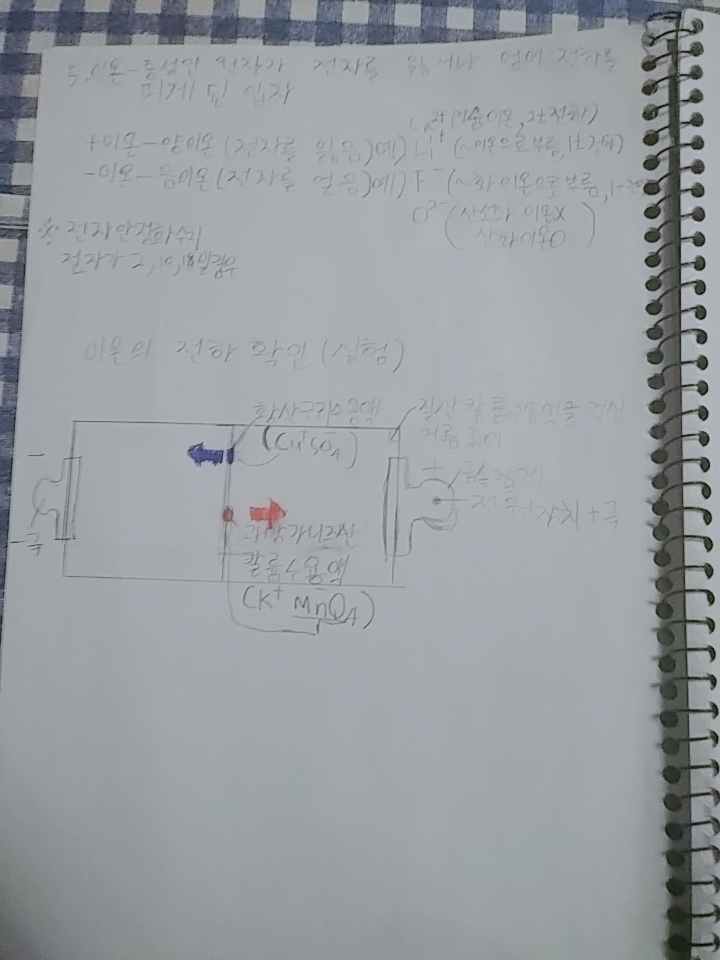 5. 이온-중성인 원자가 전자를 잃거나 얻어 전하를
띠게 된 입자
Ca²⁺(칼슘이온, 2+전하)
+이온-양이온(전자를 잃음)예) Li⁺ (~이온으로부름, 1+전하)
-이온-음이온(전자를 얻음)예) F⁻ (~화 이온으로부름, 1-전
O²⁻ (산소화 이온X
산화이온O)
※ 전자안정화수치
전자가 2, 10, 18일경우
이온의 전하 확인(실험)
황산구리수용액
(Cu⁺SO₄)
질산칼륨수용액을 적신
거름종이
-
-극
+
금속집게
전원장치+극
과망가니즈산
칼륨수용액
(K⁺ MnO₄)